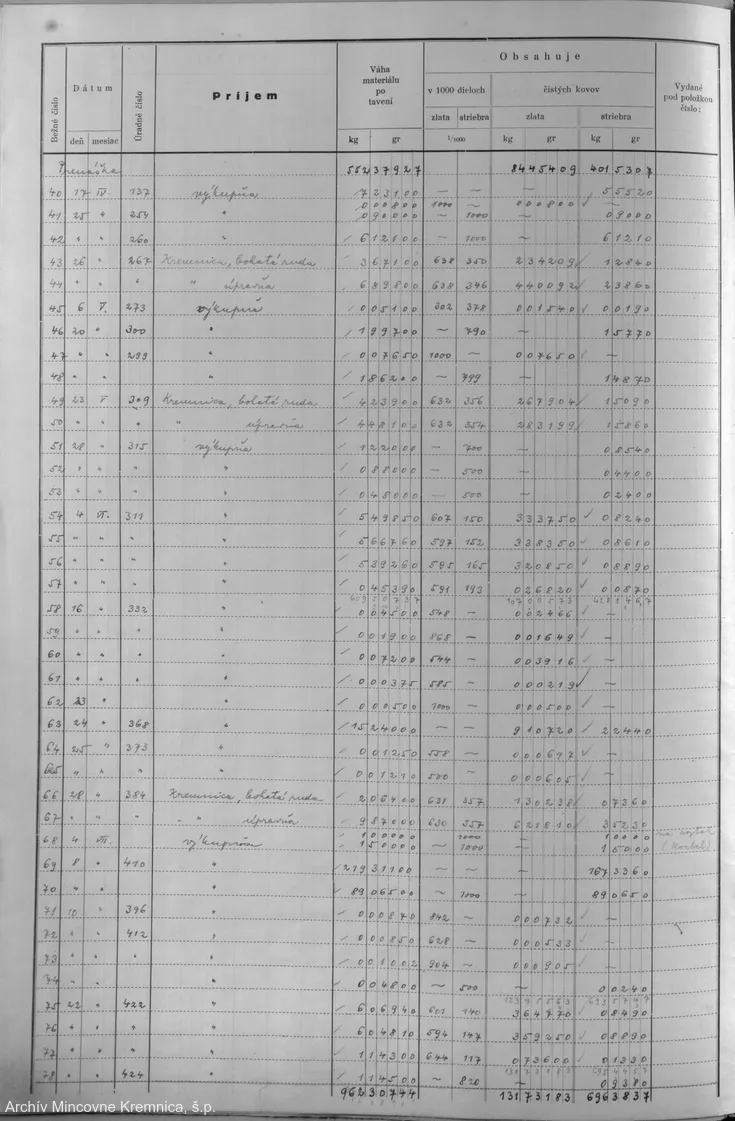 Obsahuje
Bežné číslo
Dátum
Úradné číslo
Príjem
Váha materiálu po tavení
v 1000 dieloch
čistých kovov
Vydané pod položkou číslo:
deň mesiac
zlata striebra
zlata
striebra
kg gr
1/1000
kg gr kg gr
Prenáška 552 37927 8445409 4015307
40 17 IV. 137 výkupňa 723100 — — — 55520
000800 1000 — 000800 —
41 25 " 254 " 090000 — 1000 — 09000
42 " " 260 " 612100 — 1000 — 61210
43 26 " 267 Kremnica, bohatá ruda 367100 638 350 234209 12840
44 " " " " úpravňa 689800 638 346 440092 23860
45 6 V. 273 výkupňa 005100 302 378 001540 00190
46 20 " 300 " 199700 — 790 — 15770
47 " " 299 " 007650 1000 — 007650 —
48 " " " 186200 — 799 — 14870
49 23 V 309 Kremnica, bohatá ruda 423900 632 356 267904 15090
50 " " " " úpravňa 448100 632 354 283199 15860
51 28 " 315 výkupňa 122000 — 700 — 08540
52 " " " 088000 — 500 — 04400
53 " " " 048000 — 500 — 02400
54 4 VI. 311 " 549850 607 150 333750 08240
55 " " " 566760 597 152 338350 08610
56 " " " 539260 595 165 320850 08890
57 " " " 045390 591 193 026820 00870
58 16 " 332 " 004500 548 — 002466 —
59 " " " " 001900 868 — 001649 —
60 " " " " 007200 544 — 003916 —
61 " " " " 000375 585 — 000219 —
62 23 " " 000500 1000 — 000500 —
63 24 " 368 " 1524000 — — 910720 22440
64 25 " 373 " 001250 558 — 000697 —
65 " " " " 001210 500 — 000605 —
66 28 " 384 Kremnica, bohatá ruda 206400 631 357 130238 07360
67 " " " úpravňa 987000 630 357 621810 35230
100000 — 1000 — 10000
68 4 VII. výkupňa 150000 — 1000 — 15000
69 8 " 410 " 21931100 — — 1673360
70 " " " 8906500 — 1000 — 890650
71 10 " 396 " 000870 842 — 000732 —
72 " " 412 " 000850 628 — 000533 —
73 " " " " 001002 904 — 000905 —
74 " " " 004800 — 500 — 00240
75 22 " 422 " 606940 601 140 364770 08490
76 " " " " 604810 594 147 359250 08890
77 " " " " 114300 644 117 073600 01330
78 " " 424 " 114500 — 820 — 09380
96230744 13173183 6963837
Archív Mincovne Kremnica, š.p.